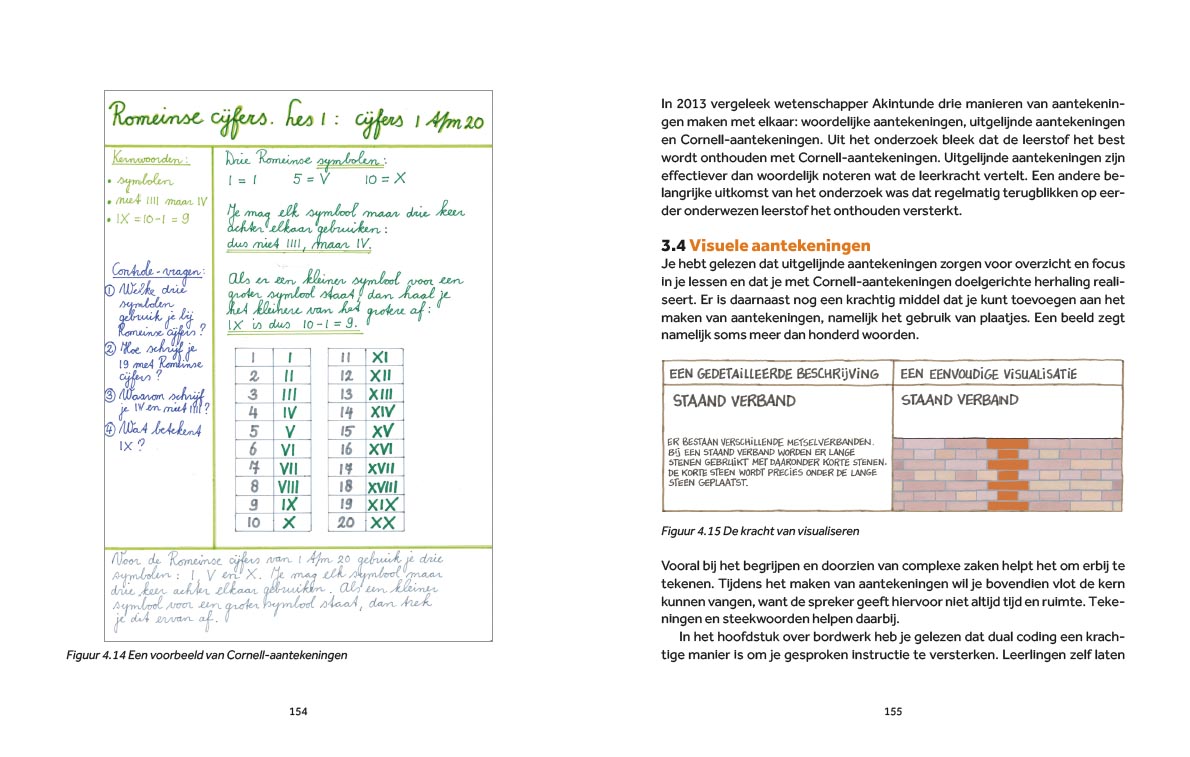 Romeinse cijfers. Les 1: cijfers 1 t/m 20
Kernwoorden:
• symbolen
• niet IIII maar IV
• IX = 10-1 = 9
Controle-vragen:
① Welke drie
symbolen
gebruik je bij
Romeinse cijfers?
② Hoe schrijf je
19 met Romeinse
cijfers?
③ Waarom schrijf
je IV en niet IIII?
④ Wat betekent
IX?
Drie Romeinse symbolen:
I = 1 5 = V 10 = X
Je mag elk symbool maar drie keer
achter elkaar gebruiken:
dus niet IIII, maar IV.
Als er een kleiner symbool voor een
groter symbool staat, dan haal je
het kleinere van het grotere af:
IX is dus 10-1 = 9.
1 I 11 XI
2 II 12 XII
3 III 13 XIII
4 IV 14 XIV
5 V 15 XV
6 VI 16 XVI
7 VII 17 XVII
8 VIII 18 XVIII
9 IX 19 XIX
10 X 20 XX
Voor de Romeinse cijfers van 1 t/m 20 gebruik je drie
symbolen: I, V en X. Je mag elk symbool maar
drie keer achter elkaar gebruiken. Als een kleiner
symbool voor een groter symbool staat, dan trek
je dit ervan af.
Figuur 4.14 Een voorbeeld van Cornell-aantekeningen
154
In 2013 vergeleek wetenschapper Akintunde drie manieren van aantekenin-
gen maken met elkaar: woordelijke aantekeningen, uitgelijnde aantekeningen
en Cornell-aantekeningen. Uit het onderzoek bleek dat de leerstof het best
wordt onthouden met Cornell-aantekeningen. Uitgelijnde aantekeningen zijn
effectiever dan woordelijk noteren wat de leerkracht vertelt. Een andere be-
langrijke uitkomst van het onderzoek was dat regelmatig terugblikken op eer-
der onderwezen leerstof het onthouden versterkt.
3.4 Visuele aantekeningen
Je hebt gelezen dat uitgelijnde aantekeningen zorgen voor overzicht en focus
in je lessen en dat je met Cornell-aantekeningen doelgerichte herhaling reali-
seert. Er is daarnaast nog een krachtig middel dat je kunt toevoegen aan het
maken van aantekeningen, namelijk het gebruik van plaatjes. Een beeld zegt
namelijk soms meer dan honderd woorden.
EEN GEDETAILLEERDE BESCHRIJVING
STAAND VERBAND
ER BESTAAN VERSCHILLENDE METSELVERBANDEN.
BIJ EEN STAAND VERBAND WORDEN ER LANGE
STENEN GEBRUIKT MET DAARONDER KORTE STENEN.
DE KORTE STEEN WORDT PRECIES ONDER DE LANGE
STEEN GEPLAATST.
EEN EENVOUDIGE VISUALISATIE
STAAND VERBAND
Figuur 4.15 De kracht van visualiseren
Vooral bij het begrijpen en doorzien van complexe zaken helpt het om erbij te
tekenen. Tijdens het maken van aantekeningen wil je bovendien vlot de kern
kunnen vangen, want de spreker geeft hiervoor niet altijd tijd en ruimte. Teke-
ningen en steekwoorden helpen daarbij.
In het hoofdstuk over bordwerk heb je gelezen dat dual coding een krach-
tige manier is om je gesproken instructie te versterken. Leerlingen zelf laten
155